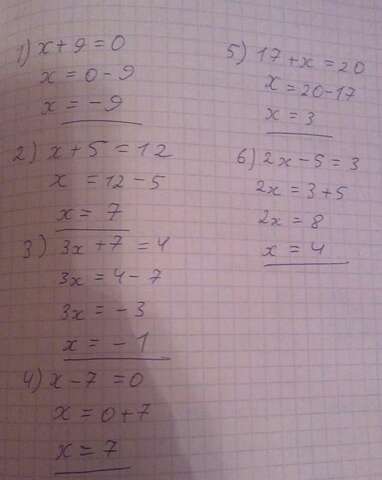 1) x + 9 = 0
x = 0 - 9
x = - 9
2) x + 5 = 12
x = 12 - 5
x = 7
3) 3x + 7 = 4
3x = 4 - 7
3x = - 3
x = - 1
4) x - 7 = 0
x = 0 + 7
x = 7
5) 17 + x = 20
x = 20 - 17
x = 3
6) 2x - 5 = 3
2x = 3 + 5
2x = 8
x = 4